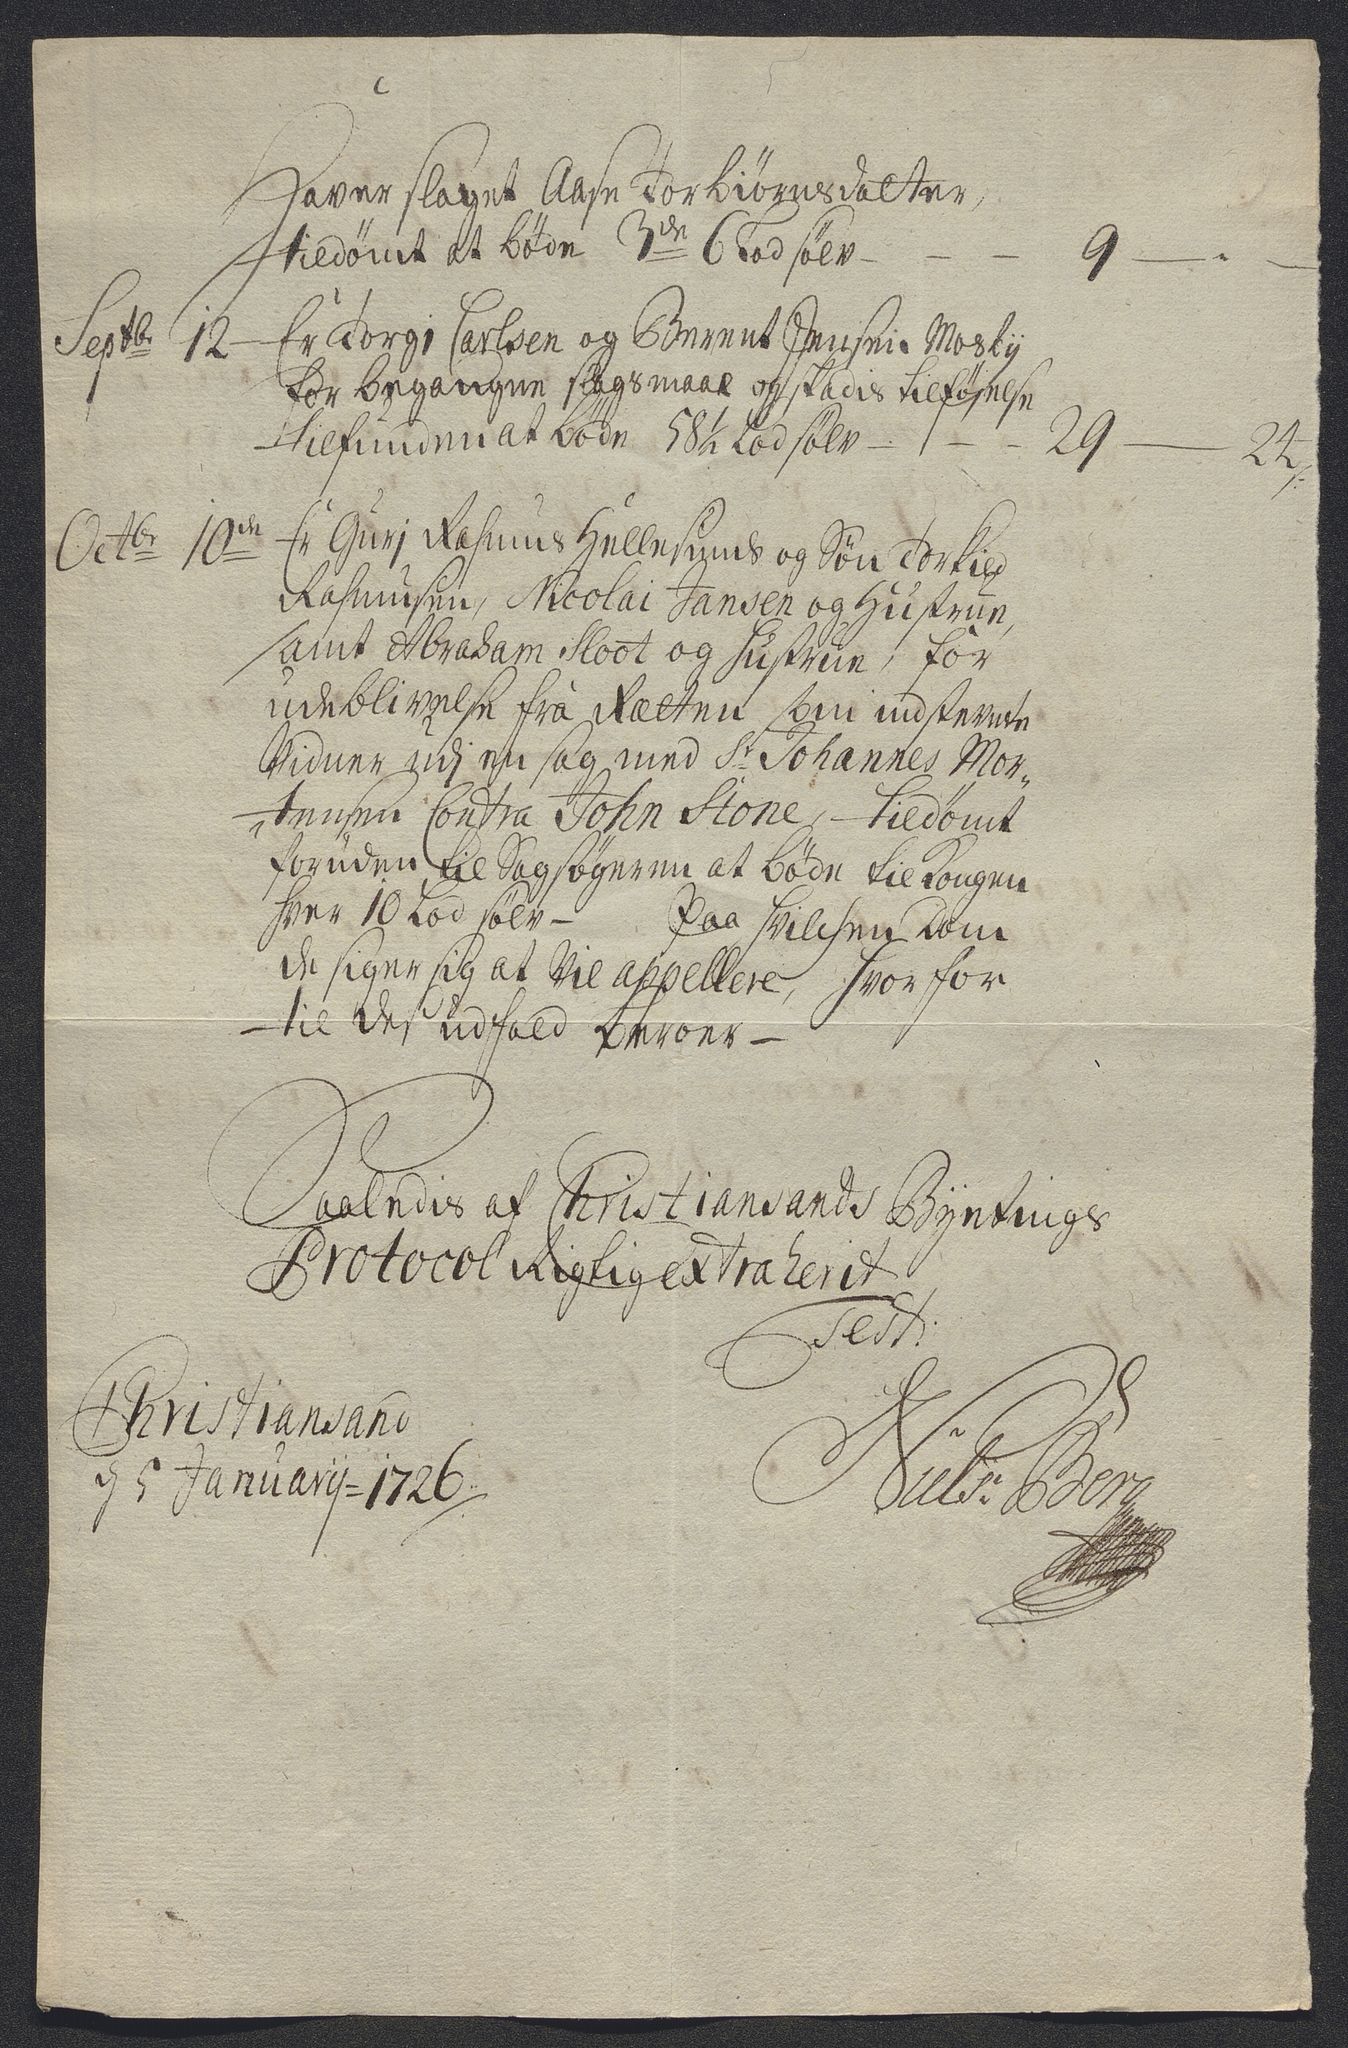 Haver slaget Aase Torbiørnsdatter,
tildømt at bøde 3de 6 Lod sølv - - - 9 — . —
Septbr 12 - Er Torgi Carlsen og Berent Jensen Mosby
for begangne slagsmaal og skadis tilføjelse
tilfunden at bøde 58½ Lod sølv - - - 29 — 24 s:
Octbr 10de Er Gurj Rasmus Hellesunds og Søn Torkild
Rasmusen, Nicolai Jansen og Hustrue,
samt Abraham Sloot og Hustrue, for
udeblivelse fra Rætten som indstevnte
Vidner udj en sag med Sr Johannes Mor-
tensen Contra John Stone, tildømt
foruden til Sagsøgeren at bøde til Kongen
hver 10 Lod sølv - Paa hvilchen Dom
de siger sig at vil appellere, hvorfor
til des udfald beroer -
Saaledis af Christiansands Byetings
Protocol Rigtig extraherit
Test.
Christiansand
d 5 January = 1726.
Niels Berg